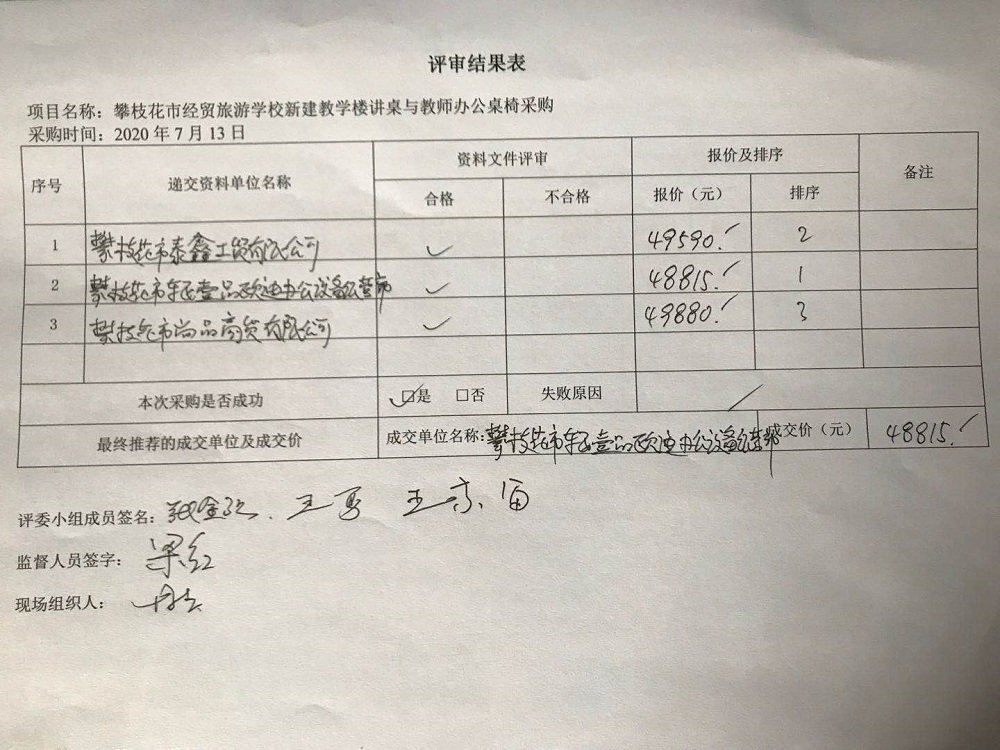 评审结果表
项目名称：攀枝花市经贸旅游学校新建教学楼讲桌与教师办公桌椅采购
采购时间：2020 年 7 月 13 日
序号 递交资料单位名称 资料文件评审 报价及排序 备注
合格 不合格 报价（元） 排序
1 攀枝花市泰鑫工贸有限公司 ✓ 49590. 2
2 攀枝花市东区壹品欧迪办公设备经营部 ✓ 48815. 1
3 攀枝花市尚品商贸有限公司 ✓ 49880. 3
本次采购是否成功 ☑是 □否 失败原因 /
最终推荐的成交单位及成交价 成交单位名称：攀枝花市东区壹品欧迪办公设备经营部 成交价（元） 48815.
评委小组成员签名： 王勇
监督人员签字：梁红
现场组织人：